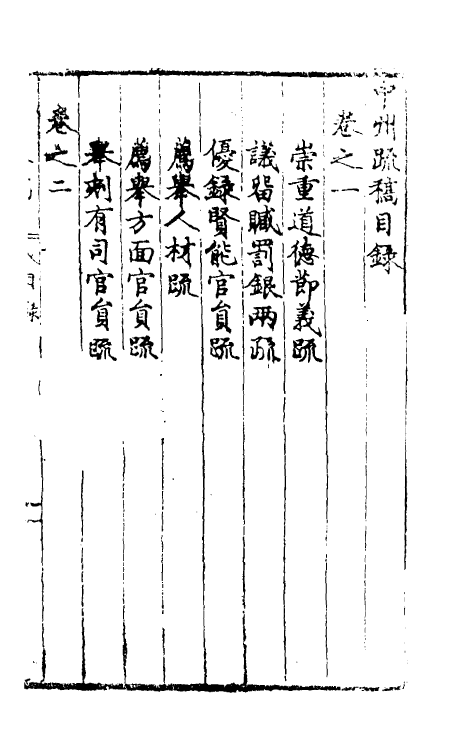 中州疏稿目錄
卷之一
崇重道德節義疏
議留贓罰銀兩疏
優錄賢能官員疏
薦舉人材疏
薦舉方面官員疏
舉刺有司官員疏
卷之二
目錄